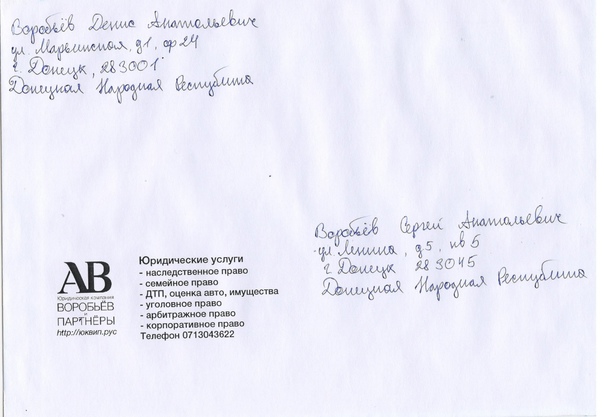 Воробьёв Денис Анатольевич
ул. Марьинская, д1, оф 24
г. Донецк, 283001
Донецкая Народная Республика
АВ
Юридическая компания
ВОРОБЬЁВ
И
ПАРТНЁРЫ
http://юквип.рус
Юридические услуги
- наследственное право
- семейное право
- ДТП, оценка авто, имущества
- уголовное право
- арбитражное право
- корпоративное право
Телефон 0713043622
Воробьёв Сергей Анатольевич
ул. Ленина, д.5, кв 5
г Донецк 283045
Донецкая Народная Республика